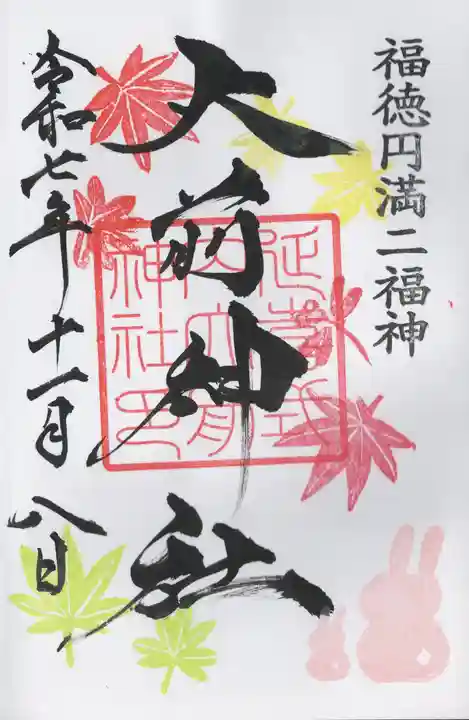 福徳円満二福神
大前神社
延喜式
内大前
神社印
令和七年十一月八日